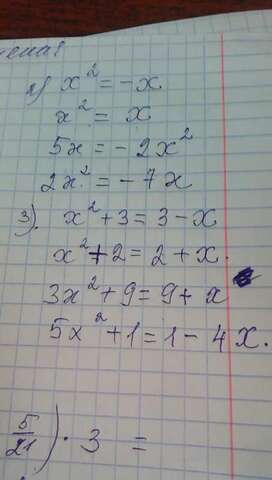 2) x² = -x
x² = x
5x = -2x²
2x² = -7x
3). x² + 3 = 3 - x
x² + 2 = 2 + x.
3x² + 9 = 9 + x
5x² + 1 = 1 - 4x.
5/21) · 3 =